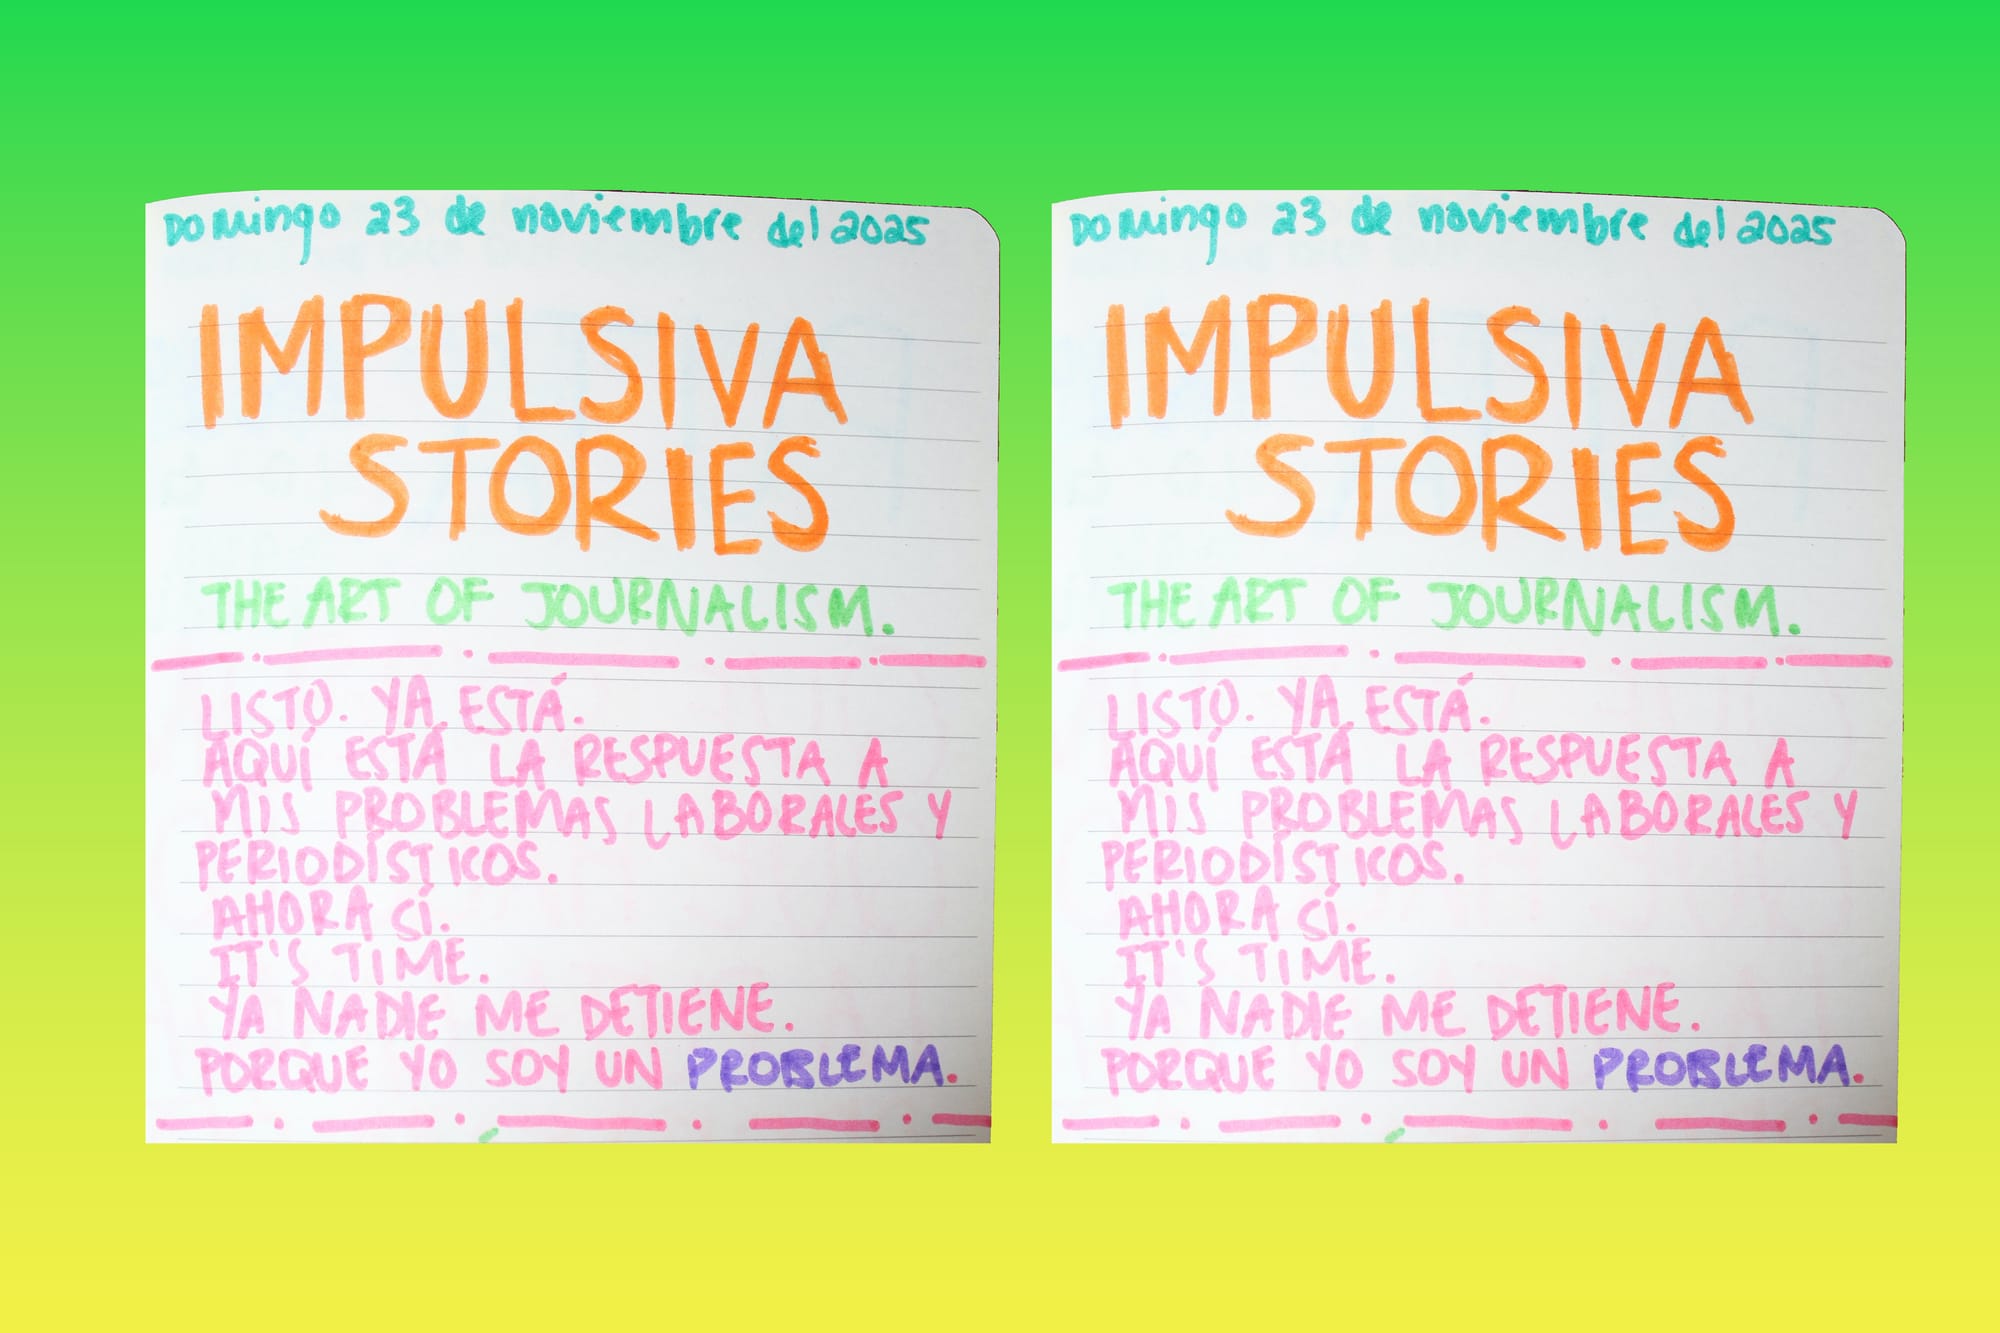 Domingo 23 de noviembre del 2025
IMPULSIVA
STORIES
THE ART OF JOURNALISM.
LISTO. YA ESTÁ.
AQUÍ ESTÁ LA RESPUESTA A
MIS PROBLEMAS LABORALES Y
PERIODÍSTICOS.
AHORA SÍ.
IT'S TIME.
YA NADIE ME DETIENE.
PORQUE YO SOY UN PROBLEMA.
Domingo 23 de noviembre del 2025
IMPULSIVA
STORIES
THE ART OF JOURNALISM.
LISTO. YA ESTÁ.
AQUÍ ESTÁ LA RESPUESTA A
MIS PROBLEMAS LABORALES Y
PERIODÍSTICOS.
AHORA SÍ.
IT'S TIME.
YA NADIE ME DETIENE.
PORQUE YO SOY UN PROBLEMA.